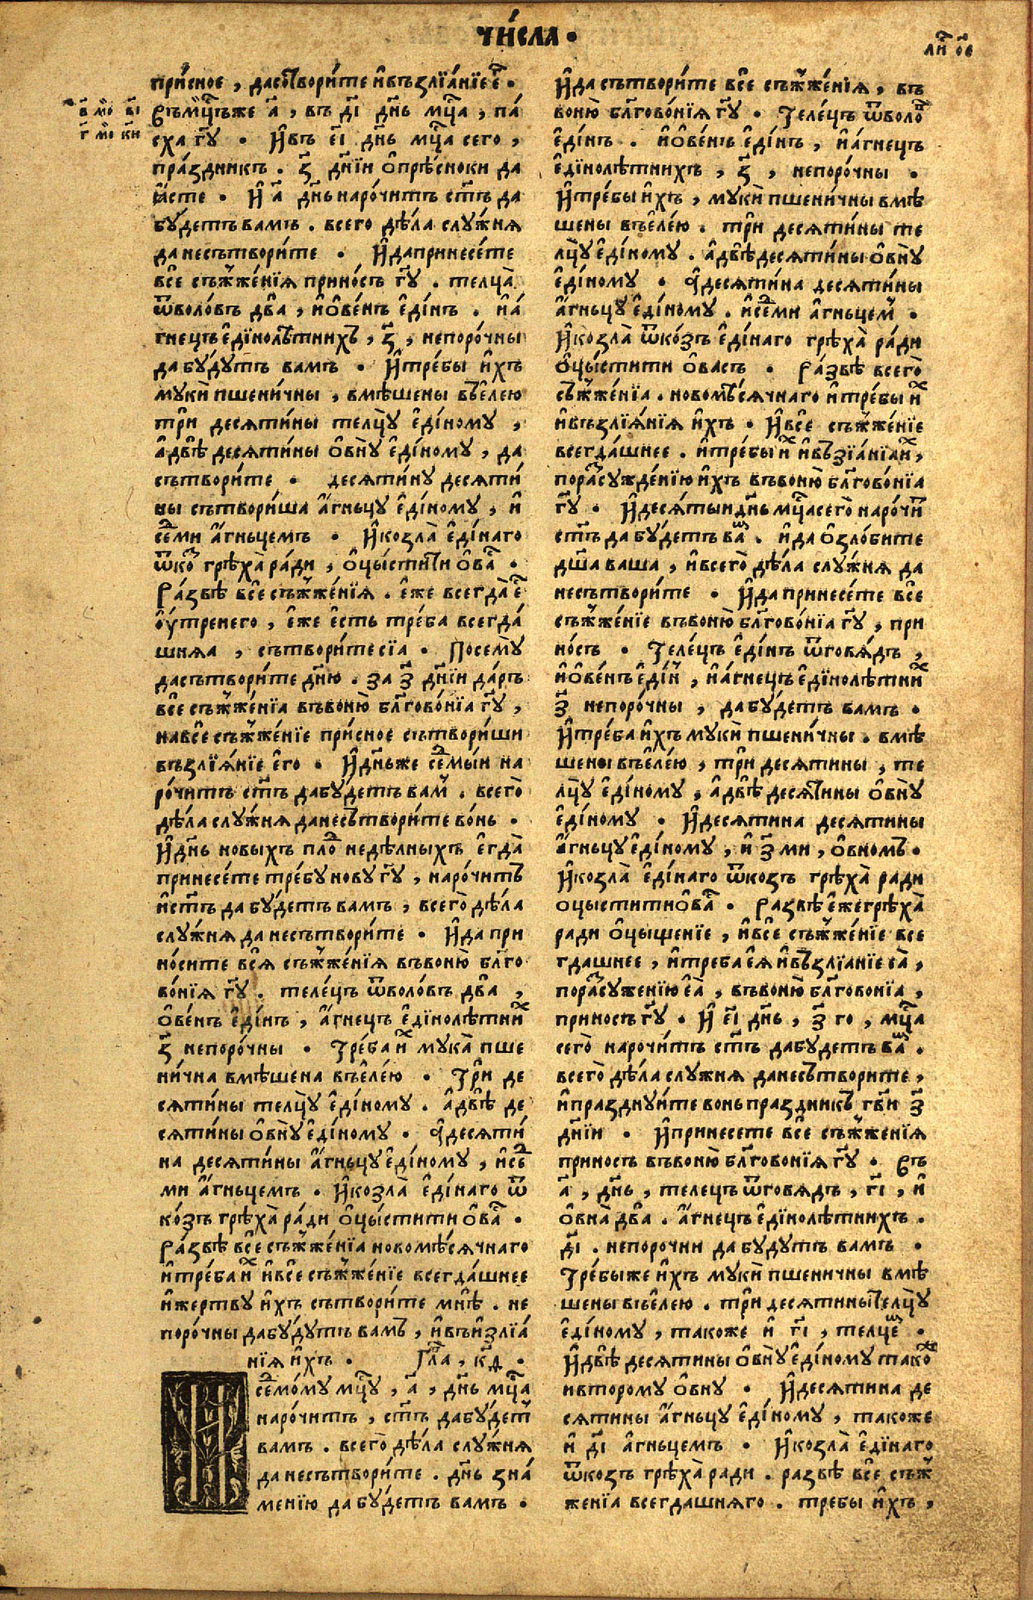 чи́сла •
ли҃ ѻ҃е
при́сное , дасо́творите и҆възлїѧ́нїе е҆г҃ •
в҃ мо҃ в҃і
г҃ мо҃ к҃и
Въ м҃цъже а҃ , въ д҃і д҃нь м҃ца , па́
сха г҃у • И҆въ е҃і д҃нь м҃ца сего ,
пра́здникъ . з҃ д҃нїи о҆прѣ́сноки да
ꙗ҆сте • И҆ а҃ д҃нь наро́читъ с҃тъ да
бу́детъ вамъ . всего дѣ́ла слу́жнѧ
да несътвори́те • И҆да принесе́те
все съж҃же́нїѧ прино́съ г҃у . телца̀
ѿволо́въ два , и҆о҆ве́нъ е҆ди́нъ . и҆ а҆́
гнецъ е҆дїнолѣ́тнихъ , з҃ , непоро́чны
да бу́дутъ вамъ • И҆тре́бы и҆хъ
муки̇̀ пшени́чны , вмѣ́шены въе҆ле́ю
три десѧти́ны телцу̀ е҆ді́ному ,
а҆двѣ десѧти́ны о҆вну̀ е҆ді́ному , да
сътвори́те • десѧти́ну десѧти́
ны сътвори́ша а҆́гньцу е҆ді́ному , и҆
се́дми а҆́гньцемъ • И҆козла̀ е҆ді́наго
ѿко́з грѣха̀ ра́ди , о҆цы́стити о҆ва́с •
Ра́звѣ все съж҃же́нїѧ . еже всегда̀ е҆с
о҆у́тренего , е҆же е҆сть тре́ба всегда́
шнѧа , сътвори́те сїа • Посему̀
да сътвори́те д҃ню . за з҃ д҃нїи да́ръ
все съж҃же́нїа въвоню̀ бл҃гово́нїа г҃у ,
навсе съж҃же́нїе при́сное сътвори́ши
възлїѧ́нїе е҆го • И҆дньже седмы́и на
ро́читъ с҃тъ да бу́детъ вам . всего̀
дѣ́ла слу́жнѧ да несътвори́те во́нь •
И҆д҃нь новыхъ пло́д недѣлныхъ е҆гда̀
принесе́те тре́бу но́ву г҃у , наро́читъ
и҆с҃тъ да бу́детъ вамъ , всего̀ дѣ́ла
слу́жнѧ да несътвори́те • И҆да при
но́сите всѧ съж҃же́нїѧ въвоню̀ бл҃го
во́нїѧ г҃у . теле́цъ ѿволо́въ два ,
о҆ве́нъ е҆ди́нъ , а҆́гнецъ е҆дїнолѣ́тних
з҃ непоро́чны • Тре́ба и҆х мука̀ пше
ни́чна вмѣ́шена въе҆ле́ю • Три де
сѧти́ны телцу̀ е҆ді́ному . а҆двѣ де
сѧти́ны о҆вну̀ е҆ді́ному • И҆десѧти́
на десѧти́ны а҆́гньцу е҆ді́ному , и҆сед
ми а҆́гньцемъ . И҆козла̀ е҆ді́наго ѿ
ко́зъ грѣха̀ ра́ди о҆цы́стити о҆ва́с •
Ра́звѣ все съж҃же́нїа новомѣ́сѧчнаго
и҆тре́ба и҆х и҆все съж҃же́нїе всегда́шнее
и҆же́ртву и҆хъ сътвори́те мнѣ . не
поро́чны да бу́дутъ вамъ , и҆възлїа́
нїѧ и҆хъ • Гл҃а , к҃д •
седмо́му м҃цу , а҃ , д҃нь м҃ца
наро́читъ , с҃тъ да бу́дет
вамъ . всего̀ дѣ́ла слу́жнѧ
да несътвори́те . д҃нь зна́
менїю да бу́детъ вамъ •
И҆да сътвори́те все съж҃же́нїѧ , въ
воню̀ бл҃гово́нїѧ г҃у • Теле́цъ ѿволо́в
е҆ді́нъ . и҆о҆ве́нъ е҆ді́нъ , и҆а҆́гнецъ
е҆дїнолѣтнихъ , з҃ , непоро́чны •
И҆тре́бы и҆хъ , муки̇̀ пшени́чны вмѣ́
шены въе҆ле́ю . три десѧти́ны те
лцу̀ е҆ді́ному . а҆двѣ десѧти́ны о҆вну̀
е҆ді́ному • И҆десѧти́на десѧти́ны
а҆́гньцу е҆ді́ному . и҆седми а҆́гньцем •
И҆козла̀ ѿко́зъ е҆ді́наго грѣха̀ ра́ди
о҆цы́стити о҆васъ • Ра́звѣ всего̀
съж҃же́нїѧ . новомѣ́сѧчнаго и҆тре́бы и҆х
и҆възлїѧ́нїѧ и҆хъ • И҆все съж҃же́нїе
всегда́шнее . и҆тре́бы и҆х и҆възїа́нїа и҆х ,
поразсужде́нїю и҆хъ въвоню̀ бл҃гово́нїа
г҃у • И҆десѧтыи д҃нь м҃ца сего̀ наро́чит
с҃тъ да бу́детъ вам . и҆да о҆зло́бите
д҃ша ваша , и҆всего̀ дѣ́ла слу́жнѧ да
несътвори́те • И҆да принесе́те все
съж҃же́нїе въвоню̀ бл҃гово́нїа г҃у , при
но́съ • Теле́цъ е҆ди́нъ ѿговѧ́дъ ,
и҆о҆ве́нъ е҆ди́н , и҆а҆́гнецъ е҆дїнолѣ́тних
з҃ непоро́чны , да бу́детъ вамъ •
И҆тре́ба и҆хъ муки̇̀ пшени́чны . вмѣ́
шены въе҆ле́ю , три десѧти́ны , те
лцу̀ е҆ді́ному , а҆двѣ десѧти́ны о҆вну̀
е҆ді́ному • И҆десѧтина десѧтины
а҆́гньцу е҆ді́ному , и҆ з҃ ми , о҆вномъ •
И҆козла̀ е҆ді́наго ѿкозъ грѣха̀ ради
оцыстити о҆вас • Развѣ е҆же грѣха̀
ради о҆цыщенїе , и҆все съж҃же́нїе все
гдашнее , и҆треба е҆ѧ и҆възлїанїе еѧ̀ ,
поразсуженїю еѧ̀ , въвоню̀ бл҃говонїа ,
приносъ г҃у • И҆ е҃і д҃нь , з҃ го , м҃ца
сего̀ нарочитъ с҃тъ да будетъ вам .
всего̀ дѣ́ла слу́жнѧ да несътворите ,
и҆празднуите вонь праздникъ г҃ви з҃
д҃нїи • И҆принесете все съж҃же́нїѧ
приносъ въвоню̀ бл҃говонїѧ г҃у • Въ
а҃ , д҃нь , телецъ ѿговѧдъ , г҃і , и҆
о҆вна̀ два . а҆гнецъ е҆дїнолѣтнихъ .
д҃і . непорочни да будутъ вамъ •
Требы же и҆хъ муки̇̀ пшеничны вмѣ
шены въе҆лею . три десѧтины телцу̀
е҆ді́ному , такоже и҆ г҃і , телцем •
И҆двѣ десѧтины о҆вну̀ е҆ді́ному тако́ж
ивторому о҆вну • И҆десѧтина де
сѧтины а҆гньцу е҆ді́ному , такоже
и҆ д҃і агньцемъ • И҆козла̀ е҆дїнаго
ѿкозъ грѣха̀ ради . развѣ все съж҃
женїа всегдашнѧго . требы и҆хъ ,